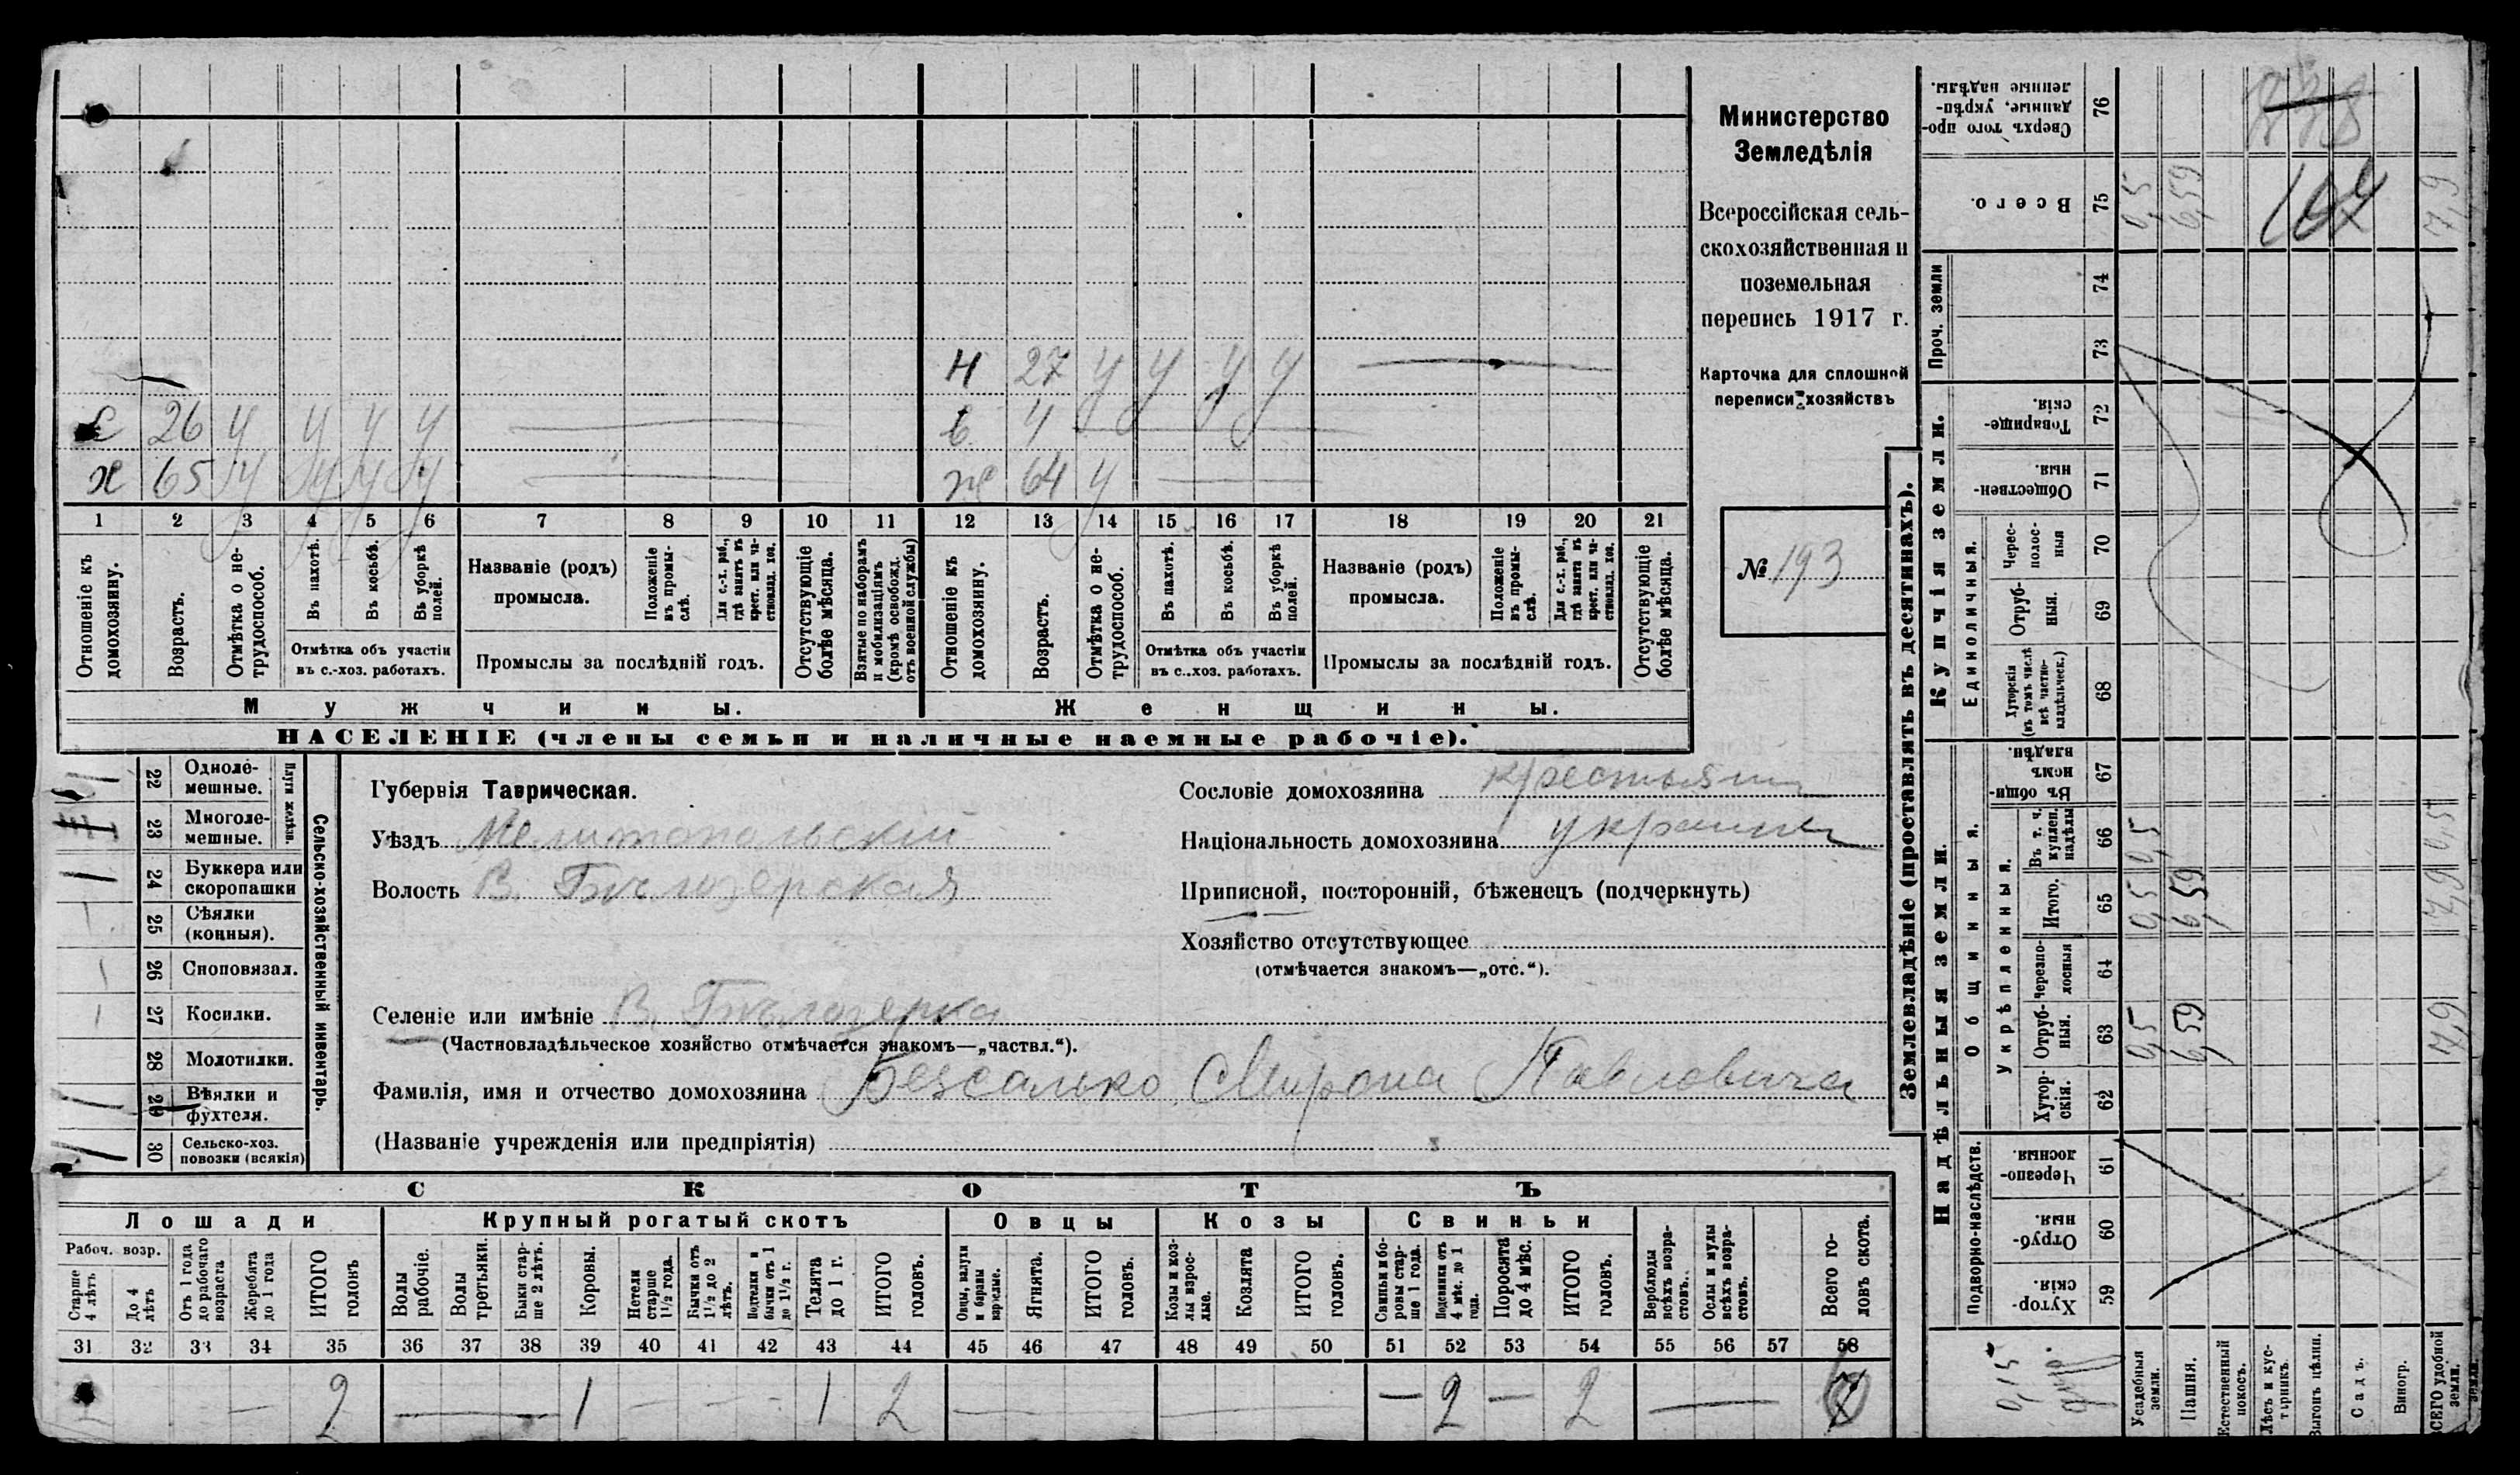 Министерство
Земледѣлія
Всероссійская сель-
скохозяйственная и
поземельная
перепись 1917 г.
Карточка для сплошной
переписи хозяйствъ
№ 193
Н 27 у у у у
с 26 у у у у
в 4
х 65 у у у у
ж 64 у
1 2 3 4 5 6 7 8 9 10 11 12 13 14 15 16 17 18 19 20 21
Отношеніе къ домохозяину.
Возрастъ.
Отмѣтка о не-
трудоспособ.
Въ пахотѣ.
Въ косьбѣ.
Въ уборкѣ полей.
Отмѣтка объ участіи
въ с.-хоз. работахъ.
Названіе (родъ)
промысла.
Положеніе въ промы-
слѣ.
Для с.-х. раб., гдѣ занятъ въ крест. или ча-
стновлад. хоз.
Промыслы за послѣдній годъ.
Отсутствующіе болѣе мѣсяца.
Взятые по наборамъ и мобилизаціямъ (кромѣ освобожд. отъ военной службы)
Отношеніе къ домохозяину.
Возрастъ.
Отмѣтка о не-
трудоспособ.
Въ пахотѣ.
Въ косьбѣ.
Въ уборкѣ полей.
Отмѣтка объ участіи
въ с.-хоз. работахъ.
Названіе (родъ)
промысла.
Положеніе въ промы-
слѣ.
Для с.-х. раб., гдѣ занята въ крест. или ча-
стновлад. хоз.
Промыслы за послѣдній годъ.
Отсутствующіе болѣе мѣсяца.
Мужчины.
Женщины.
НАСЕЛЕНІЕ (члены семьи и наличные наемные рабочіе).
Сельско-хозяйственный инвентарь.
Плуги желѣзн.
22 Одноле-
мешные. 1
23 Многоле-
мешные. 1
24 Буккера или
скоропашки 1
25 Сѣялки
(конныя). 1
26 Сноповязал. 1
27 Косилки. 1
28 Молотилки.
29 Вѣялки и
фухтеля. 1
30 Сельско-хоз.
повозки (всякія) 1
Губернія Таврическая.
Уѣздъ Мелитопольскій
Волость В. Бѣлозерская
Сословіе домохозяина крестьянин
Національность домохозяина украинец
Приписной, посторонній, бѣженецъ (подчеркнуть)
Хозяйство отсутствующее
(отмѣчается знакомъ—„отс.“).
Селеніе или имѣніе В. Бѣлозерка
(Частновладѣльческое хозяйство отмѣчается знакомъ—„частвл.“).
Фамилія, имя и отчество домохозяина Безсалько Мирона Павловича
(Названіе учрежденія или предпріятія)
СКОТЪ
Лошади
Крупный рогатый скотъ
Овцы
Козы
Свиньи
Рабоч. возр.
Старше 4 лѣтъ
До 4 лѣтъ
Отъ 1 года до рабочаго возраста
Жеребята до 1 года
ИТОГО головъ
Волы рабочіе.
Волы третьяки.
Быки стар-
ше 2 лѣтъ.
Коровы.
Нетели старше 1½ года.
Бычки отъ 1½ до 2 лѣтъ.
Подтелки и бычки отъ 1 до 1½ г.
Телята до 1 г.
ИТОГО головъ.
Овцы, валухи и бараны взрослые.
Ягнята.
ИТОГО головъ.
Козы и коз-
лы взрос-
лые.
Козлята
ИТОГО головъ.
Свиньи и бо-
ровы стар-
ше 1 года.
Подсвинки отъ 4 мѣс. до 1 года.
Поросята до 4 мѣс.
ИТОГО головъ.
Верблюды всѣхъ возра-
стовъ.
Ослы и мулы всѣхъ возра-
стовъ.
Всего го-
ловъ скота.
31 32 33 34 35 36 37 38 39 40 41 42 43 44 45 46 47 48 49 50 51 52 53 54 55 56 57 58
— 2 — 1 — — — 1 2 — — — 2 — 2 —
Землевладѣніе (проставлять въ десятинахъ).
Надѣльныя земли.
Купчія земли.
Проч. земли
Подворно-наслѣдств.
Общинныя.
Укрѣпленныя.
Единоличныя.
59 Хутор-
скія.
60 Отруб-
ныя.
61 Черезпо-
лосныя.
62 Хутор-
скія.
63 Отруб-
ныя.
64 Черезпо-
лосныя
65 Итого.
66 Въ т. ч.
куплен.
надѣлы
67 Въ общи-
номъ
владѣн.
68 Хуторскія
(въ томъ числѣ
всѣ частно-
владѣльческ.)
69 Отруб-
ныя.
70 Черес-
полос-
ныя
71 Обществен-
ныя.
72 Товарище-
скія.
73
74
75 Всего.
76 Сверхъ того про-
данные, укрѣп-
ленные надѣлы.
Усадебныя земли.
0,5 0,5 0,5 0,5
Пашня.
6,59 6,59 6,59
Естественный покосъ.
Лѣсъ и кус-
тарникъ.
Выгонъ цѣлин.
Садъ.
Виногр.
ВСЕГО удобной земли.
7,9 7,9 0,5 7,9